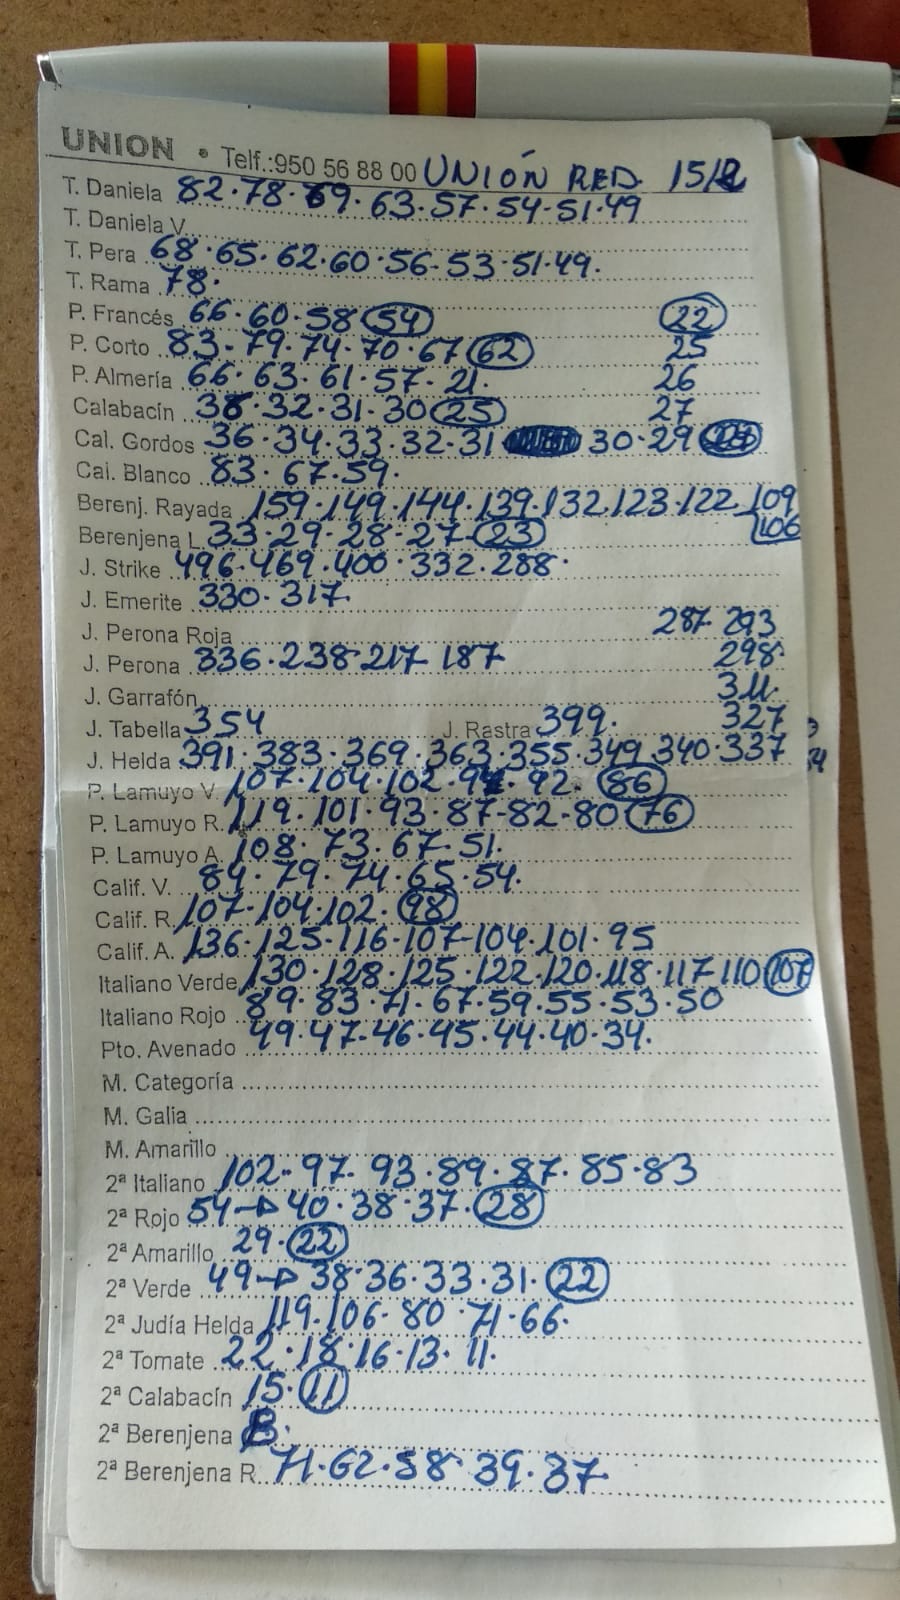 UNION • Telf.:950 56 88 00 UNIÓN RED. 15/2
T. Daniela 82.78.69.63.57.54-51.49
T. Daniela V.
T. Pera 68.65.62.60.56-53.51.49.
T. Rama 78.
P. Francés 66.60.58 54 22
P. Corto 83-79.74.70.67 62 25
P. Almería 66.63.61.57-21. 26
Calabacín 38.32.31.30 25 27
Cal. Gordos 36.34.33.32.31 30.29
Cal. Blanco 83.67.59.
Berenj. Rayada 159.149.144.139.132.123.122 109
Berenjena L 33-29-28-27- 23 106
J. Strike 496.469.400.332.288.
J. Emerite 330.317.
J. Perona Roja 287-293
J. Perona 336.238-217-187 298
J. Garrafón 311.
J. Tabella 354 J. Rastra 399. 327
J. Helda 391.383.369.363.355.349.340.337
P. Lamuyo V. 107.104.102. 92. 86
P. Lamuyo R. 119.101.93-87-82-80 76
P. Lamuyo A. 108.73.67-51.
Calif. V. 84.79.74.65.54.
Calif. R. 107-104.102. 98
Calif. A. 136.125-116-107-104.101.95
Italiano Verde 130.128.125.122.120.118.117 110 107
Italiano Rojo 89.83.71.67.59.55.53.50
Pto. Avenado 49.47-46.45.44.40.34.
M. Categoría
M. Galia
M. Amarillo
2ª Italiano 102-97.93.89.87.85.83
2ª Rojo 54→40.38.37. 28
2ª Amarillo 29. 22
2ª Verde 49→38.36.33.31. 22
2ª Judía Helda 119.106-80.71.66.
2ª Tomate 22.18.16-13.11.
2ª Calabacín 15. 11
2ª Berenjena
2ª Berenjena R. 71.62.58.39.37